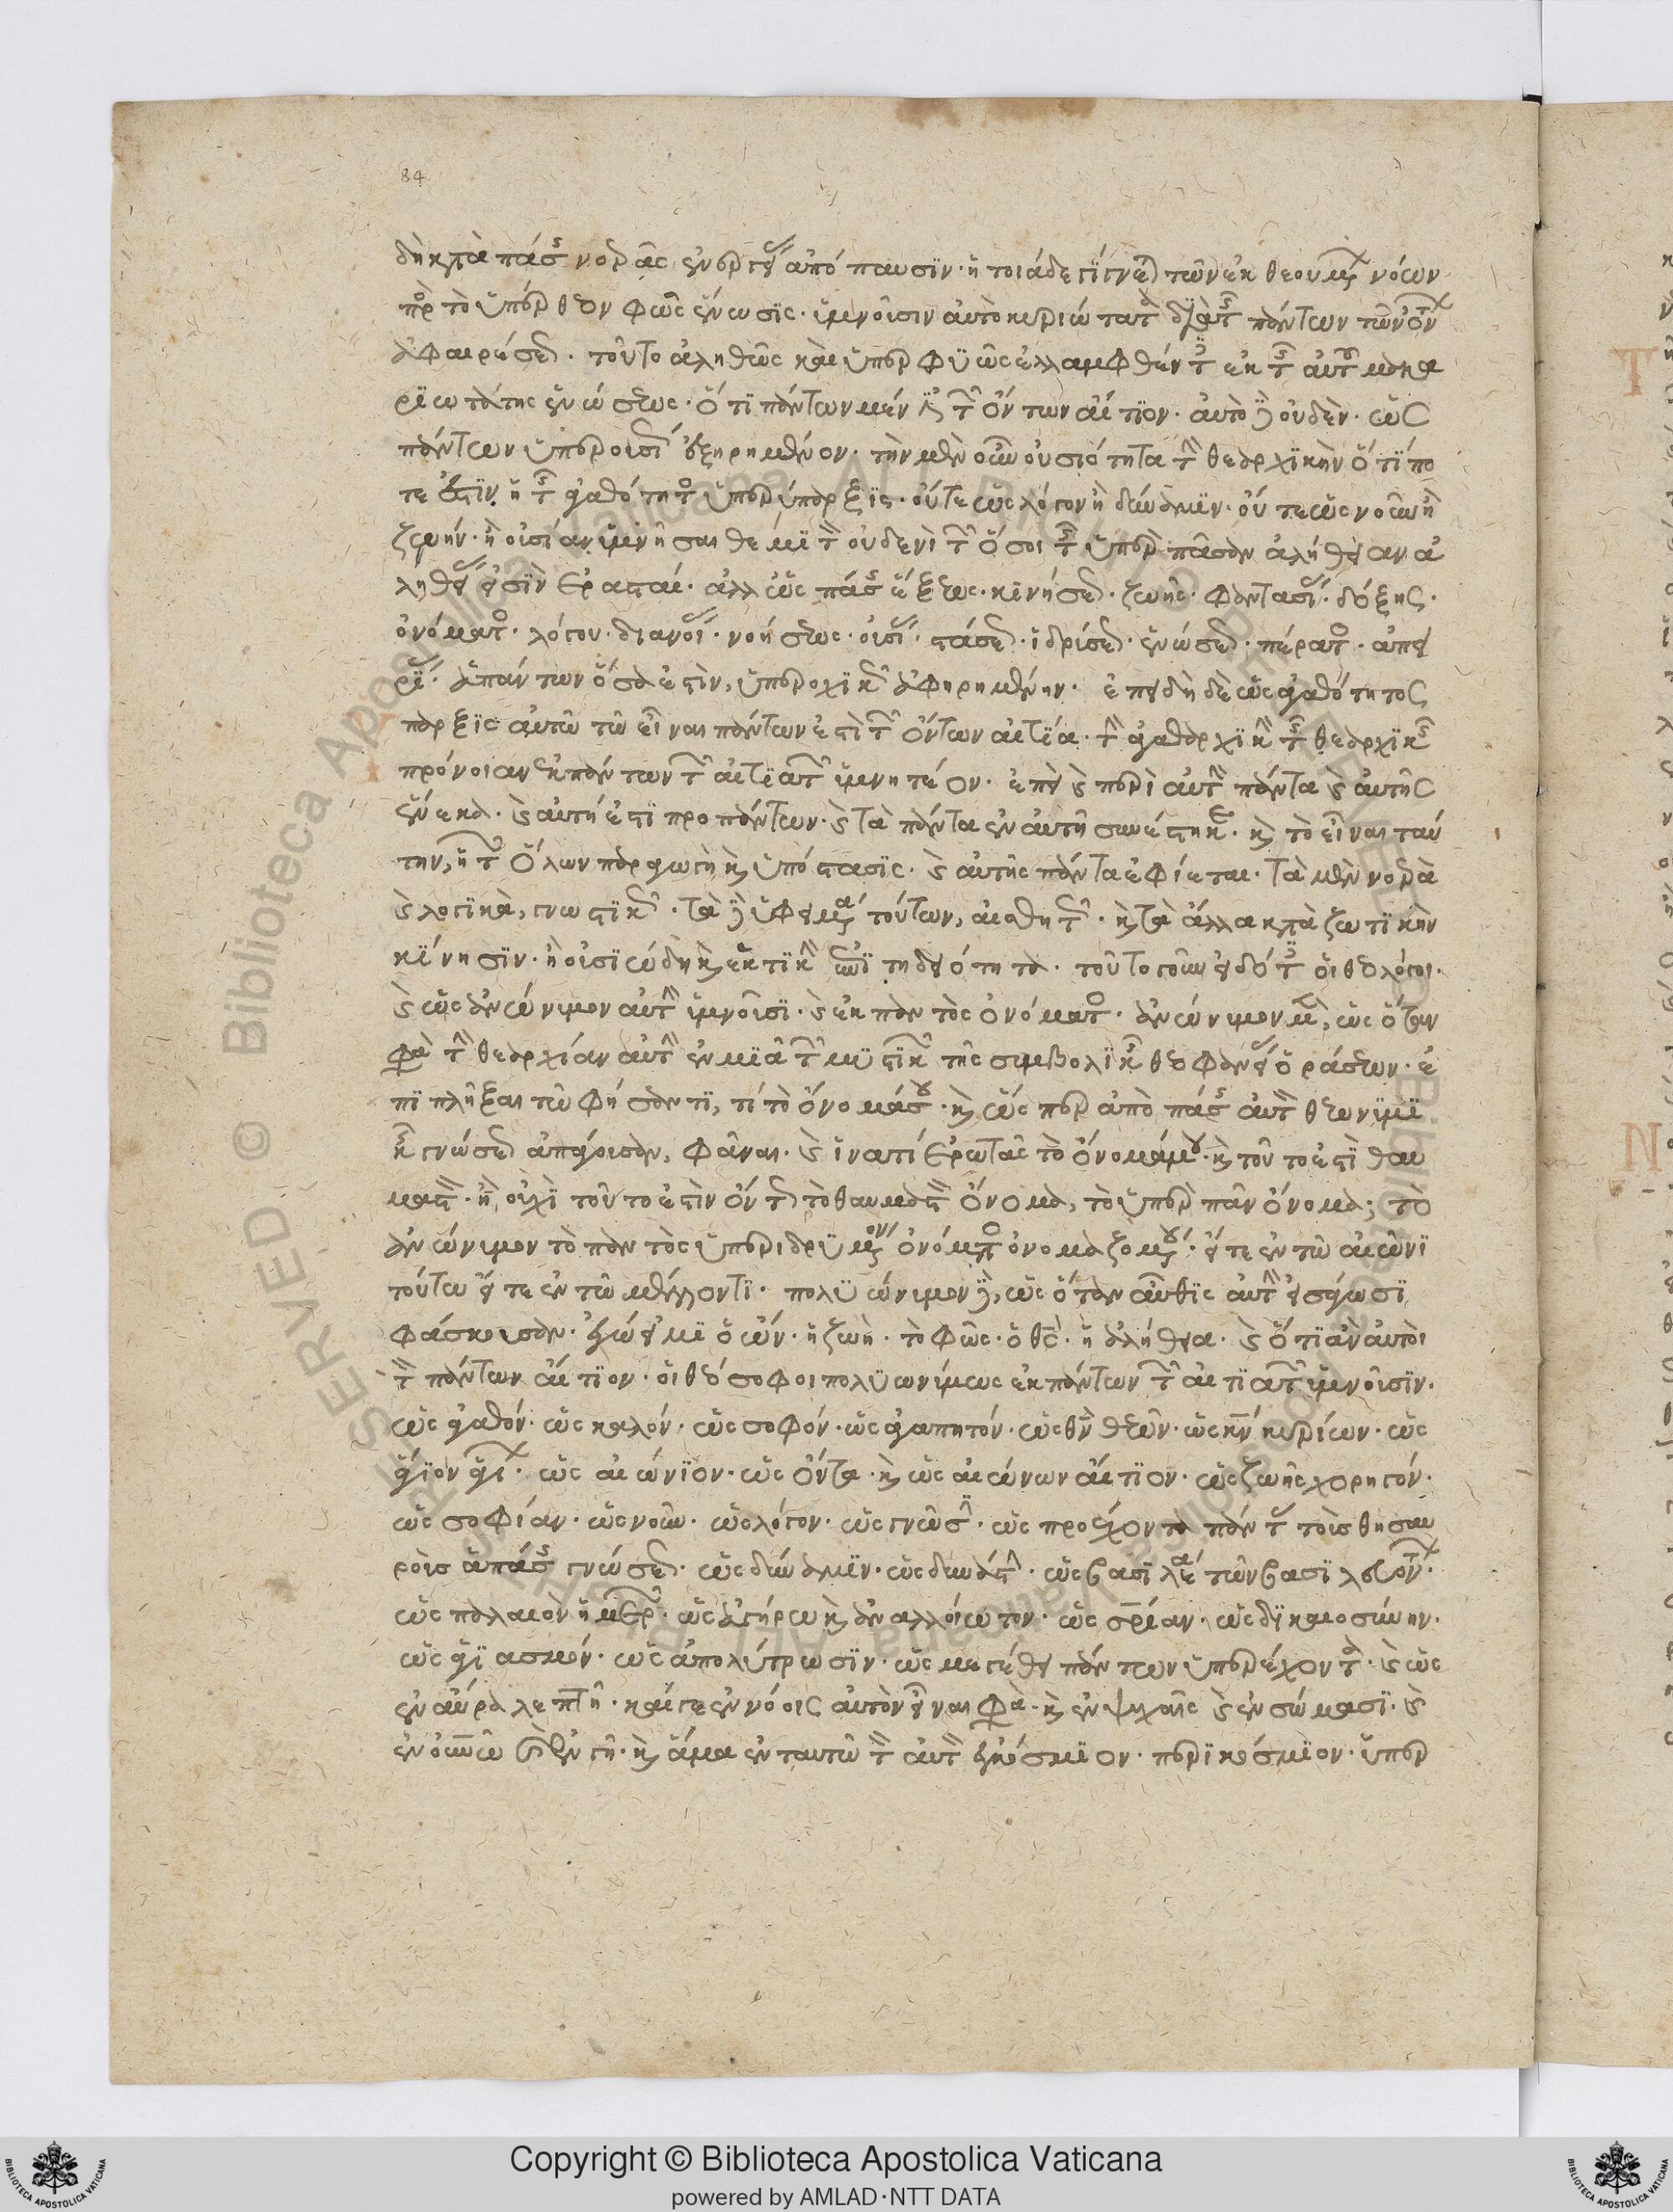 84
δὴ κατὰ πάσης νοερᾶς ἐνεργείας ἀπόπαυσιν· ἡ τοιάδε γίγνεται τῶν ἐκθεουμένων νόων
πρὸς τὸ ὑπέρθεον φῶς ἕνωσις· ὑμνοῦσιν αὐτὸ κυριώτατα διὰ τῆς πάντων τῶν ὄντων
ἀφαιρέσεως· τοῦτο ἀληθῶς καὶ ὑπερφυῶς ἐλλαμφθέντες ἐκ τῆς πρὸς αὐτὸ μακα
ριωτάτης ἑνώσεως· ὅτι πάντων μέν ἐστι τῶν ὄντων αἴτιον· αὐτὸ δὲ οὐδὲν· ὡς
πάντων ὑπερουσίως ἐξῃρημένον· τὴν μὲν οὖν ὑπερουσιότητα τὴν θεαρχικὴν ὅ τί πο
τε ἐστιν ἡ τῆς ἀγαθότητος ὑπερύπαρξις· οὔτε ὡς λόγον ἢ δύναμιν· οὔτε ὡς νοῦν ἢ
ζωήν· ἢ οὐσίαν ὑμνῆσαι θεμιτὸν οὐδενὶ τῶν ὅσοι τῆς ὑπὲρ πᾶσαν ἀλήθειαν ἀ
ληθείας εἰσὶν ἐρασταί· ἀλλ' ὡς πάσης ἕξεως· κινήσεως· ζωῆς· φαντασίας· δόξης·
ὀνόματος· λόγου· διανοίας· νοήσεως· οὐσίας· στάσεως· ἱδρύσεως· ἑνώσεως· πέρατος· ἀπει
ρίας· ἁπάντων ὅσα ἐστὶν, ὑπεροχικῶς ἀφῃρημένην· ἐπειδὴ δὲ ὡς ἀγαθότητος
ὕπαρξις αὐτῷ τῷ εἶναι πάντων ἐστὶ τῶν ὄντων αἰτία· τὴν ἀγαθαρχικὴν τῆς θεαρχίας
πρόνοιαν ἐκ πάντων τῶν αἰτιατῶν ὑμνητέον· ἐπεὶ καὶ περὶ αὐτὴν πάντα καὶ αὐτῆς
ἕνεκα· καὶ αὐτή ἐστι πρὸ πάντων· καὶ τὰ πάντα ἐν αὐτῇ συνέστηκεν· καὶ τὸ εἶναι ταύ
την, ἡ τῶν ὅλων παραγωγὴ καὶ ὑπόστασις· καὶ αὐτῆς πάντα ἐφίεται· τὰ μὲν νοερὰ
καὶ λογικὰ, γνωστικῶς· τὰ δὲ ὑφειμένα τούτων, αἰσθητῶς· καὶ τὰ ἄλλα κατὰ ζωτικὴν
κίνησιν· ἢ οὐσιώδη καὶ ἑκτικὴν ἐπιτηδειότητα· τοῦτο γοῦν εἰδότες οἱ θεολόγοι·
καὶ ὡς ἀνώνυμον αὐτὴν ὑμνοῦσι· καὶ ἐκ παντὸς ὀνόματος· ἀνώνυμον μὲν, ὡς ὅταν
φασὶ τὴν θεαρχίαν αὐτὴν ἐν μιᾷ τῶν μυστικῶν τῆς συμβολικῆς θεοφανείας ὁράσεων· ἐ
πιπλῆξαι τῷ φήσαντι, τί τὸ ὄνομά σου· καὶ ὥσπερ ἀπὸ πάσης αὐτὸν θεωνυμι
κῆς γνώσεως ἀπάγουσαν, φᾶναι· καὶ ἵνα τί ἐρωτᾷς τὸ ὄνομά μου· καὶ τοῦτο ἐστὶ θαυ
μαστὸν· ἢ οὐχὶ τοῦτο ἐστὶν ὄντως τὸ θαυμαστὸν ὄνομα, τὸ ὑπὲρ πᾶν ὄνομα; τὸ
ἀνώνυμον τὸ παντὸς ὑπεριδρυμένον ὀνόματος ὀνομαζομένου· εἴτε ἐν τῷ αἰῶνι
τούτῳ εἴτε ἐν τῷ μέλλοντι· πολυώνυμον δὲ, ὡς ὅταν αὖθις αὐτὴν εἰσάγωσι
φάσκουσαν· ἐγώ εἰμι ὁ ὤν· ἡ ζωή· τὸ φῶς· ὁ θς· ἡ ἀλήθεια· καὶ ὅτι ἂν αὐτοὶ
τὸν πάντων αἴτιον· οἱ θεόσοφοι πολυωνύμως ἐκ πάντων τῶν αἰτιατῶν ὑμνοῦσιν·
ὡς ἀγαθόν· ὡς καλόν· ὡς σοφόν· ὡς ἀγαπητόν· ὡς θν θεῶν· ὡς κν κυρίων· ὡς
ἅγιον ἁγίων· ὡς αἰώνιον· ὡς ὄντα· καὶ ὡς αἰώνων αἴτιον· ὡς ζωῆς χορηγόν·
ὡς σοφίαν· ὡς νοῦν· ὡς λόγον· ὡς γνώστην· ὡς προέχοντα πάντας τοὺς θησαυ
ροὺς ἁπάσης γνώσεως· ὡς δύναμιν· ὡς δυνάστην· ὡς βασιλέα τῶν βασιλευόντων·
ὡς παλαιὸν ἡμερῶν· ὡς ἀγήρω καὶ ἀναλλοίωτον· ὡς σρίαν· ὡς δικαιοσύνην·
ὡς ἁγιασμόν· ὡς ἀπολύτρωσιν· ὡς μεγέθει πάντων ὑπερέχοντα· καὶ ὡς
ἐν αὔρᾳ λεπτῇ· καί γε ἐν νόοις αὐτὸν εἶναι φασὶ· καὶ ἐν ψυχαῖς καὶ ἐν σώμασι· καὶ
ἐν οὐνῷ καὶ ἐν γῇ· καὶ ἅμα ἐν ταυτῷ τὸν αὐτὸν ἐγκόσμιον· περικόσμιον· ὑπερ
Copyright © Biblioteca Apostolica Vaticana
powered by AMLAD·NTT DATA